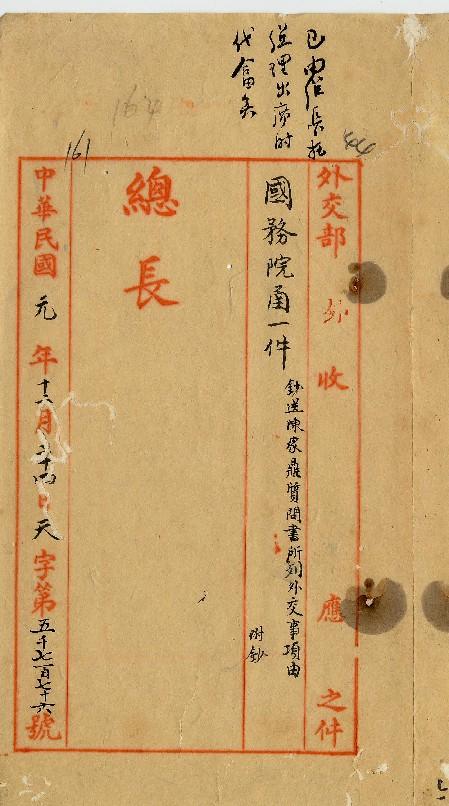 已由次長於
總理出席時
代答矣
44
外交部 外 收 應 之件
國務院函一件
鈔送陳家鼎質問書所列外交事項由
附鈔
總長
164
161
中華民國元年十二月二十四日天字第五千七百七十六號